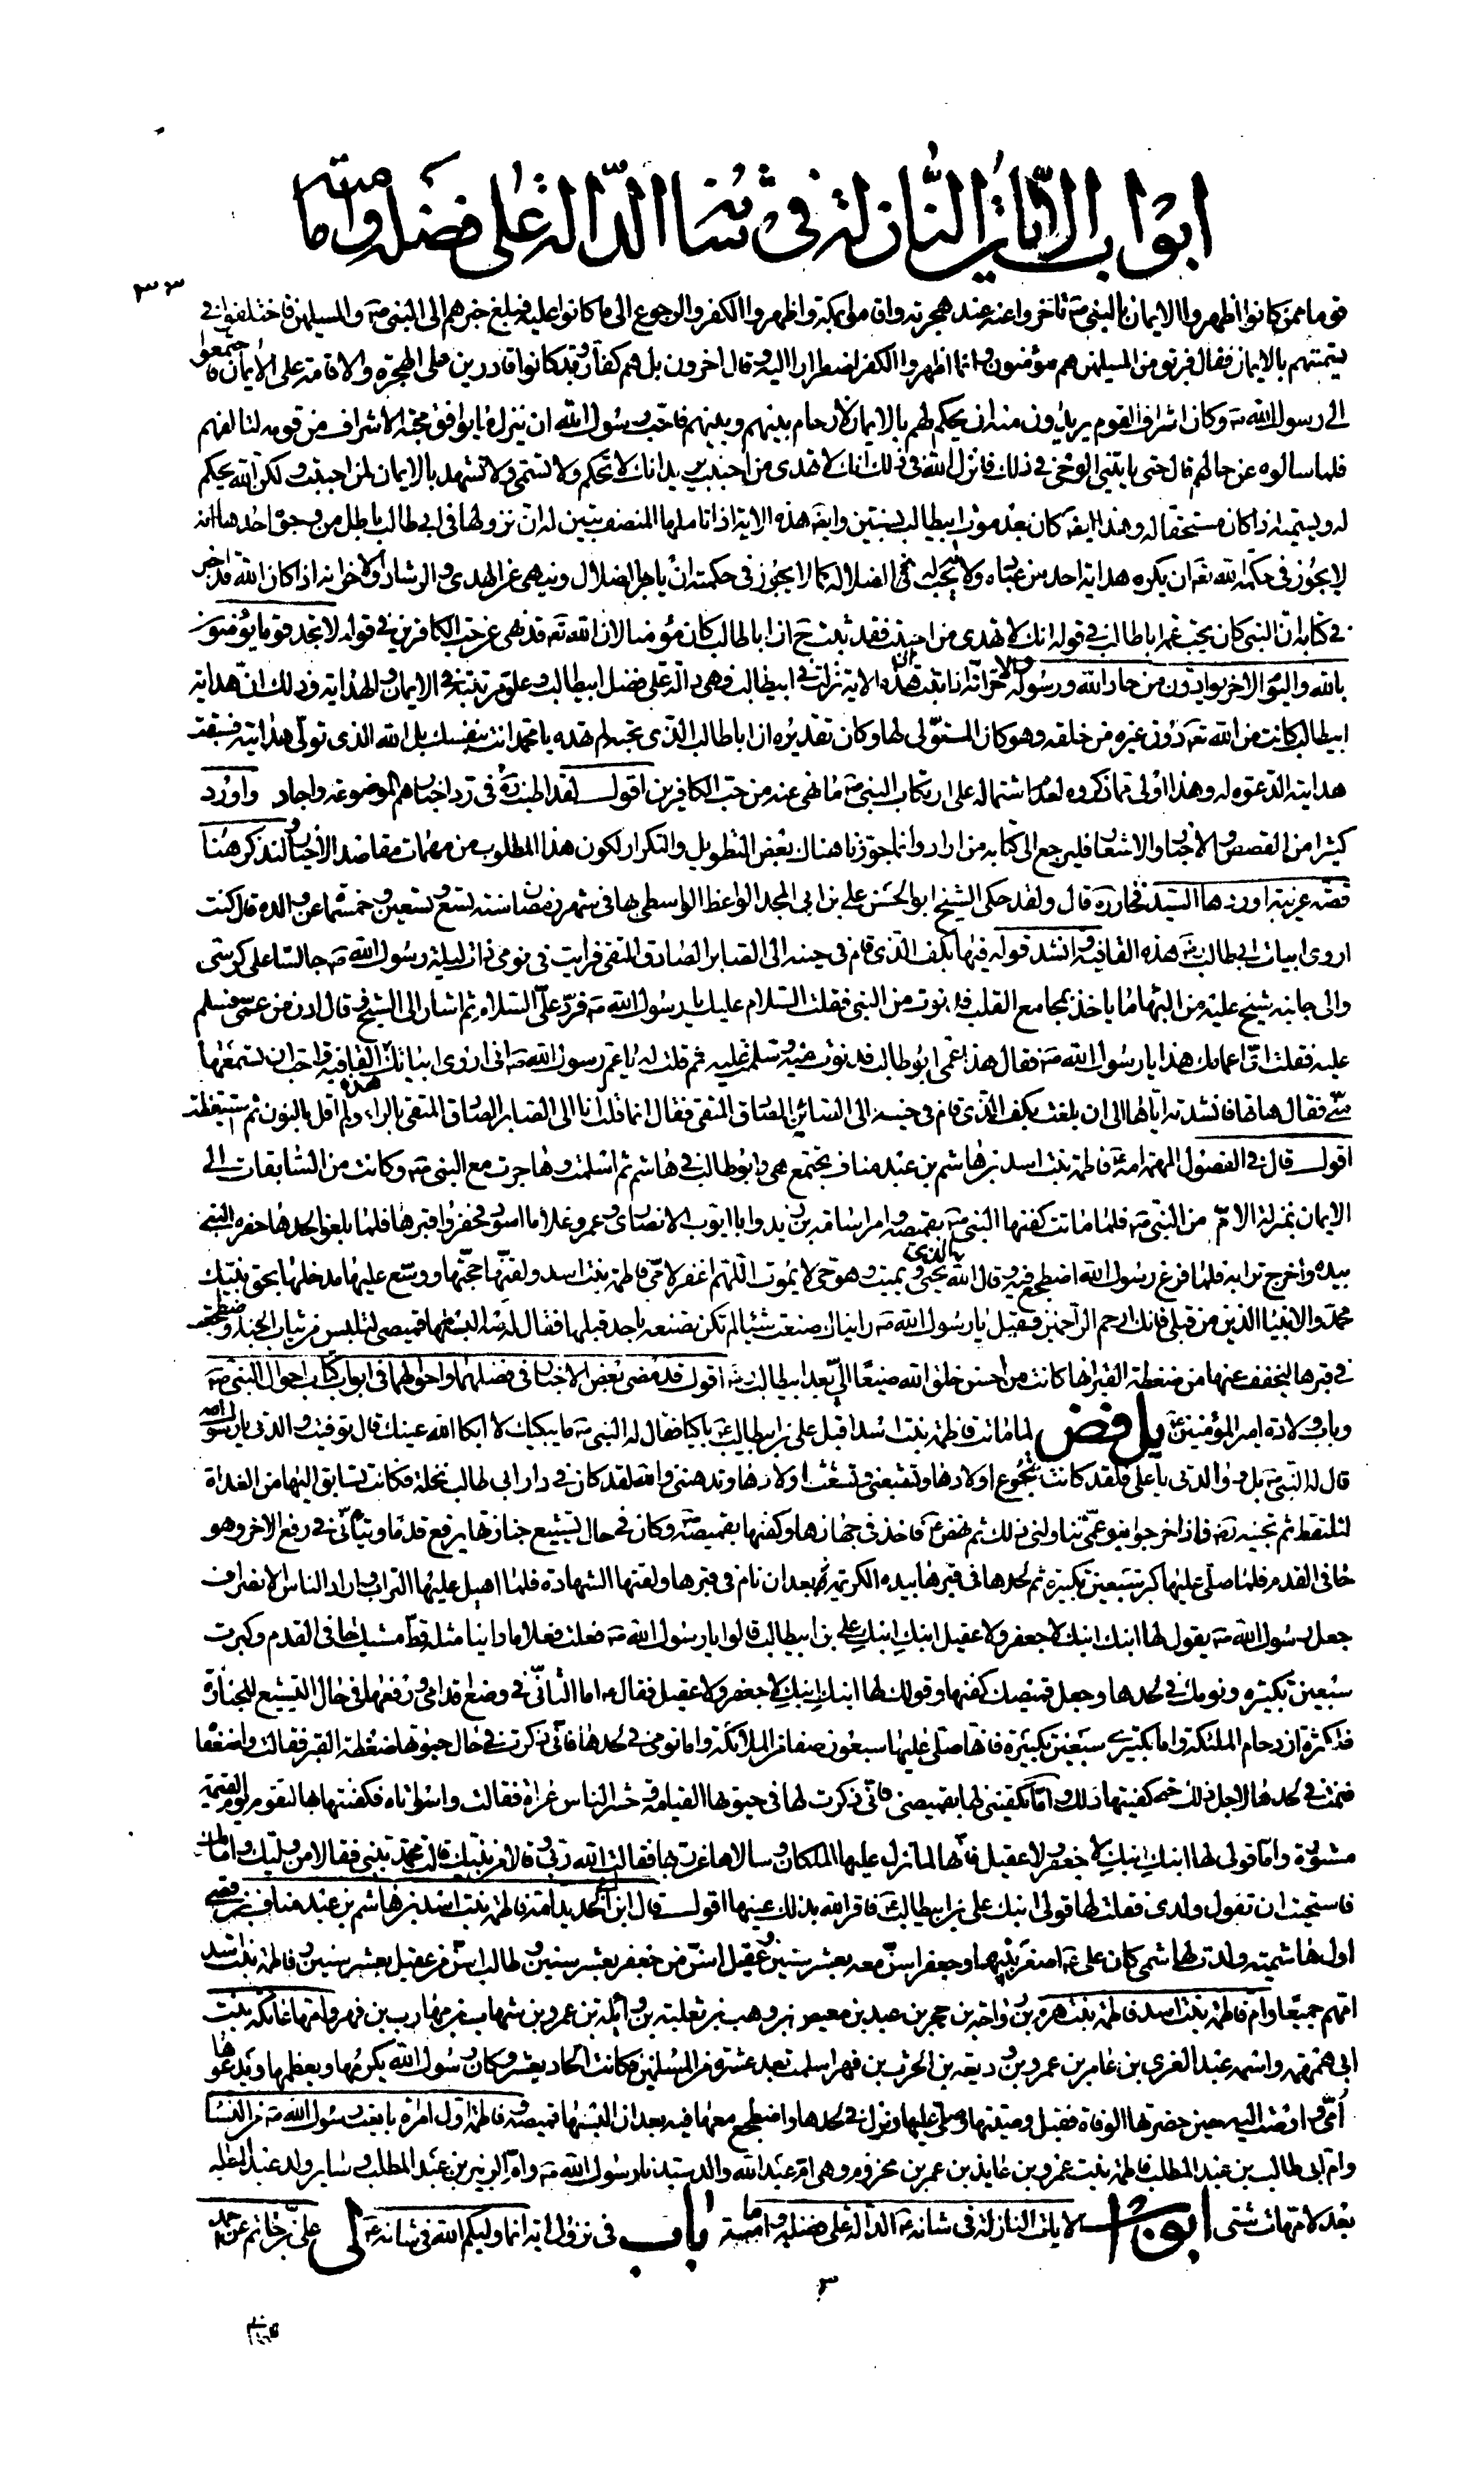 ابواب الآيات النازلة في شانه الدالة على فضله وامامته
٣٣
قوما ممن كانوا اظهروا الايمان بالنبي ص تاخروا عنه عند هجرته واقاموا بمكة واظهروا الكفر والرجوع الى ما كانوا عليه فبلغ خبرهم الى النبي ص والمسلمين فاختلفوا في
تسميتهم بالايمان فقال فريق من المسلمين هم مؤمنون وانما اظهروا الكفر اضطرارا اليه وقال اخرون بل هم كفار وقد كانوا قادرين على الهجرة والاقامة على الايمان فاجتمعوا
الى رسول الله ص وكان اشراف القوم يريدون منه ان يحكم لهم بالايمان لارحام بينهم وبينهم فاحب رسول الله ان ينزل ما يوافق محبة الاشراف من قومه لتالفهم
فلما سالوه عن حالهم قال حتى ياتيني الوحي في ذلك فانزل الله في ذلك انك لا تهدي من احببت يريد انك لا تحكم ولا تسمي ولا تشهد بالايمان لمن احببت ولكن الله يحكم
له ويسميه اذا كان مستحقا له وهذا ايضا كان بعد موت ابيطالب بسنتين وايضا هذه الاية اذا تاملها المنصف تبين له ان نزولها في ابي طالب باطل من وجوه احدها انه
لا يجوز في حكمة الله تعالى ان يكره هداية احد من عباده ولا ان يحب له الضلالة كما لا يجوز في حكمته ان يامر بالضلال وينهى عن الهدى والرشاد والاخر انه اذا كان الله قد اخبر
في كتابه ان النبي كان يحب عمه ابا طالب في قوله انك لا تهدي من احببت فقد ثبت ح ان ابا طالب كان مؤمنا لان الله تع قد نهى عن حب الكافرين في قوله لا تجد قوما يؤمنون
بالله واليوم الاخر يوادون من حاد الله ورسوله والاخر انه اذا ثبت ان هذه الاية نزلت في ابيطالب فهي دالة على فضل ابيطالب وعلو مرتبته في الايمان والهداية وذلك ان هداية
ابيطالب كانت من الله تع دون غيره من خلقه وهو كان المتولي لها وكان تقديره ان ابا طالب الذي تحبه لم تهده يا محمد انت بنفسك بل الله الذي تولى هدايته فسبقت
هدايته الدعوة له وهذا اولى مما ذكروه لعدم اشتماله على ارتكاب النبي ص ما نهي عنه من حب الكافرين اقول لقد اطنب ره في رد اخبارهم الموضوعة واجاد واورد
كثيرا من القصص والاخبار والاشعار فليرجع الى كتابه من اراد وانما جوزنا هناك بعض التطويل والتكرار لكون هذا المطلوب من مهمات مقاصد الاخيار ولنذكر هنا
قصة غريبة اوردها السيد فخار ره قال ولقد حكى الشيخ ابو الحسن علي بن ابي المجد الواعظ الواسطي بها في شهر رمضان سنة تسع وتسعين وخمسمائة عن والده قال كنت
اروي ابيات ابي طالب رض هذه القافية وانشد قوله فيها بكف الذي قام في جنبه الى الصابر الصادق المتقي فرايت في نومي ذات ليلة رسول الله ص جالسا على كرسي
والى جانبه شيخ عليه من البهاء ما ياخذ بمجامع القلب فدنوت من النبي فقلت السلام عليك يا رسول الله ص فرد علي السلام ثم اشار الى الشيخ وقال ادن من عمي فسلم
عليه فقلت اي اعمامك هذا يا رسول الله ص فقال هذا عمي ابو طالب فدنوت منه وسلمت عليه ثم قلت له يا عم رسول الله ص اني اروي ابياتك هذه القافية واحب ان تسمعها
مني فقال هاتها فانشدته اياها الى ان بلغت بكف الذي قام في جنبه الى الصائن الصادق المتقي فقال انما قلت انا الى الصابر الصادق المتقي بالراء ولم اقل بالنون ثم استيقظت
اقول قال في الفصول المهمة امه ع فاطمة بنت اسد بن هاشم بن عبد مناف تجتمع هي وابو طالب في هاشم ثم اسلمت وهاجرت مع النبي ص وكانت من السابقات الى
الايمان بمنزلة الام من النبي ص فلما ماتت كفنها النبي ص بقميصه وامر اسامة بن زيد وابا ايوب الانصاري وعمر وغلاما اسود فحفروا قبرها فلما بلغوا لحدها حفره النبي
بيده واخرج ترابه فلما فرغ رسول الله اضطجع فيه وقال الله الذي يحيي ويميت وهو حي لا يموت اللهم اغفر لامي فاطمة بنت اسد ولقنها حجتها ووسع عليها مدخلها بحق نبيك
محمد والانبياء الذين من قبلي فانك ارحم الراحمين فقيل يا رسول الله ص رايناك صنعت شيئا لم تكن تصنعه باحد قبلها فقال ص البستها قميصي لتلبس من ثياب الجنة واضطجعت
في قبرها ليخفف عنها من ضغطة القبر انها كانت من احسن خلق الله صنيعا الي بعد ابيطالب رض اقول قد مضى بعض الاخبار في فضلهما واحوالهما في ابواب كتاب احوال النبي ص
وباب ولادة امير المؤمنين ع يل فض لما ماتت فاطمة بنت اسد اقبل علي بن ابيطالب ع باكيا فقال له النبي ص ما يبكيك لا ابكى الله عينك قال توفيت والدتي يا رسول الله
قال له النبي ص بل ووالدتي يا علي فلقد كانت تجوع اولادها وتشبعني وتشعث اولادها وتدهنني والله لقد كان في دار ابي طالب نخلة فكانت تسابق اليها من الغداة
لتلتقط ثم تجنيه رض فاذا خرجوا بنو عمي تناولني ذلك ثم نهض ع فاخذ في جهازها وكفنها بقميصه ص وكان في حال تشييع جنازتها يرفع قدما ويتانى في رفع الاخر وهو
حافي القدم فلما صلى عليها كبر سبعين تكبيرة ثم لحدها في قبرها بيده الكريمة بعد ان نام في قبرها ولقنها الشهادة فلما اهيل عليها التراب واراد الناس الانصراف
جعل رسول الله ص يقول لها ابنك ابنك لا جعفر ولا عقيل ابنك ابنك علي بن ابيطالب قالوا يا رسول الله ص فعلت فعلا ما راينا مثله قط مشيك حافي القدم وكبرت
سبعين تكبيرة ونومك في لحدها وجعل قميصك كفنها وقولك لها ابنك ابنك لا جعفر ولا عقيل فقال ص اما التاني في وضع اقدامي ورفعها في حال التشييع للجنازة
فلكثرة ازدحام الملائكة واما تكبيري سبعين تكبيرة فانها صلى عليها سبعون صفا من الملائكة واما نومي في لحدها فاني ذكرت في حال حيوتها ضغطة القبر فقالت واضعفاه
فنمت في لحدها لاجل ذلك حتى كفيتها ذلك واما تكفيني لها بقميصي فاني ذكرت لها في حيوتها القيامة وحشر الناس عراة فقالت واسواتاه فكفنتها بها لتقوم يوم القيمة
مستورة واما قولي لها ابنك ابنك لا جعفر ولا عقيل فانها لما نزل عليها الملكان وسالاها عن ربها فقالت الله ربي وقالا من نبيك قالت محمد نبيي فقالا من وليك وامامك
فاستحيت ان تقول ولدي فقلت لها قولي ابنك علي بن ابيطالب ع فاقر الله بذلك عينها اقول قال ابن ابي الحديد امه فاطمة بنت اسد بن هاشم بن عبد مناف بن قصي
اول هاشمية ولدت لهاشمي كان علي ع اصغر بنيها وجعفر اسن منه بعشر سنين وعقيل اسن من جعفر بعشر سنين وطالب اسن من عقيل بعشر سنين وفاطمة بنت اسد
امهم جميعا وام فاطمة بنت اسد فاطمة بنت هرم بن رواحة بن حجر بن عبد بن معيص بن وهب بن ثعلبة بن واثلة بن عمرو بن شهاب بن مهارب بن فهر وامها عاتكة بنت
ابي همهمة واسمه عبد العزى بن عامر بن عمرو بن وديعة بن الحرث بن فهر اسلمت بعد عشرة من المسلمين فكانت الحادي عشر وكان رسول الله يكرمها ويعظمها ويدعوها
امي واوصت اليه حين حضرتها الوفاة فقبل وصيتها وصلى عليها ونزل في لحدها واضطجع معها فيه بعد ان البسها قميصه وفاطمة اول امراة بايعت رسول الله ص من النساء
وام ابي طالب بن عبد المطلب فاطمة بنت عمرو بن عايذ بن عمر بن مخزوم وهي ام عبد الله والد سيدنا رسول الله ص وام الزبير بن عبد المطلب وساير ولد عبد المطلب
بعد لامهات شتى ابواب الايات النازلة في شانه ع الدالة على فضله وامامته باب في نزول اية انما وليكم الله في شانه ع لى علي بن حاتم عن احمد
٣